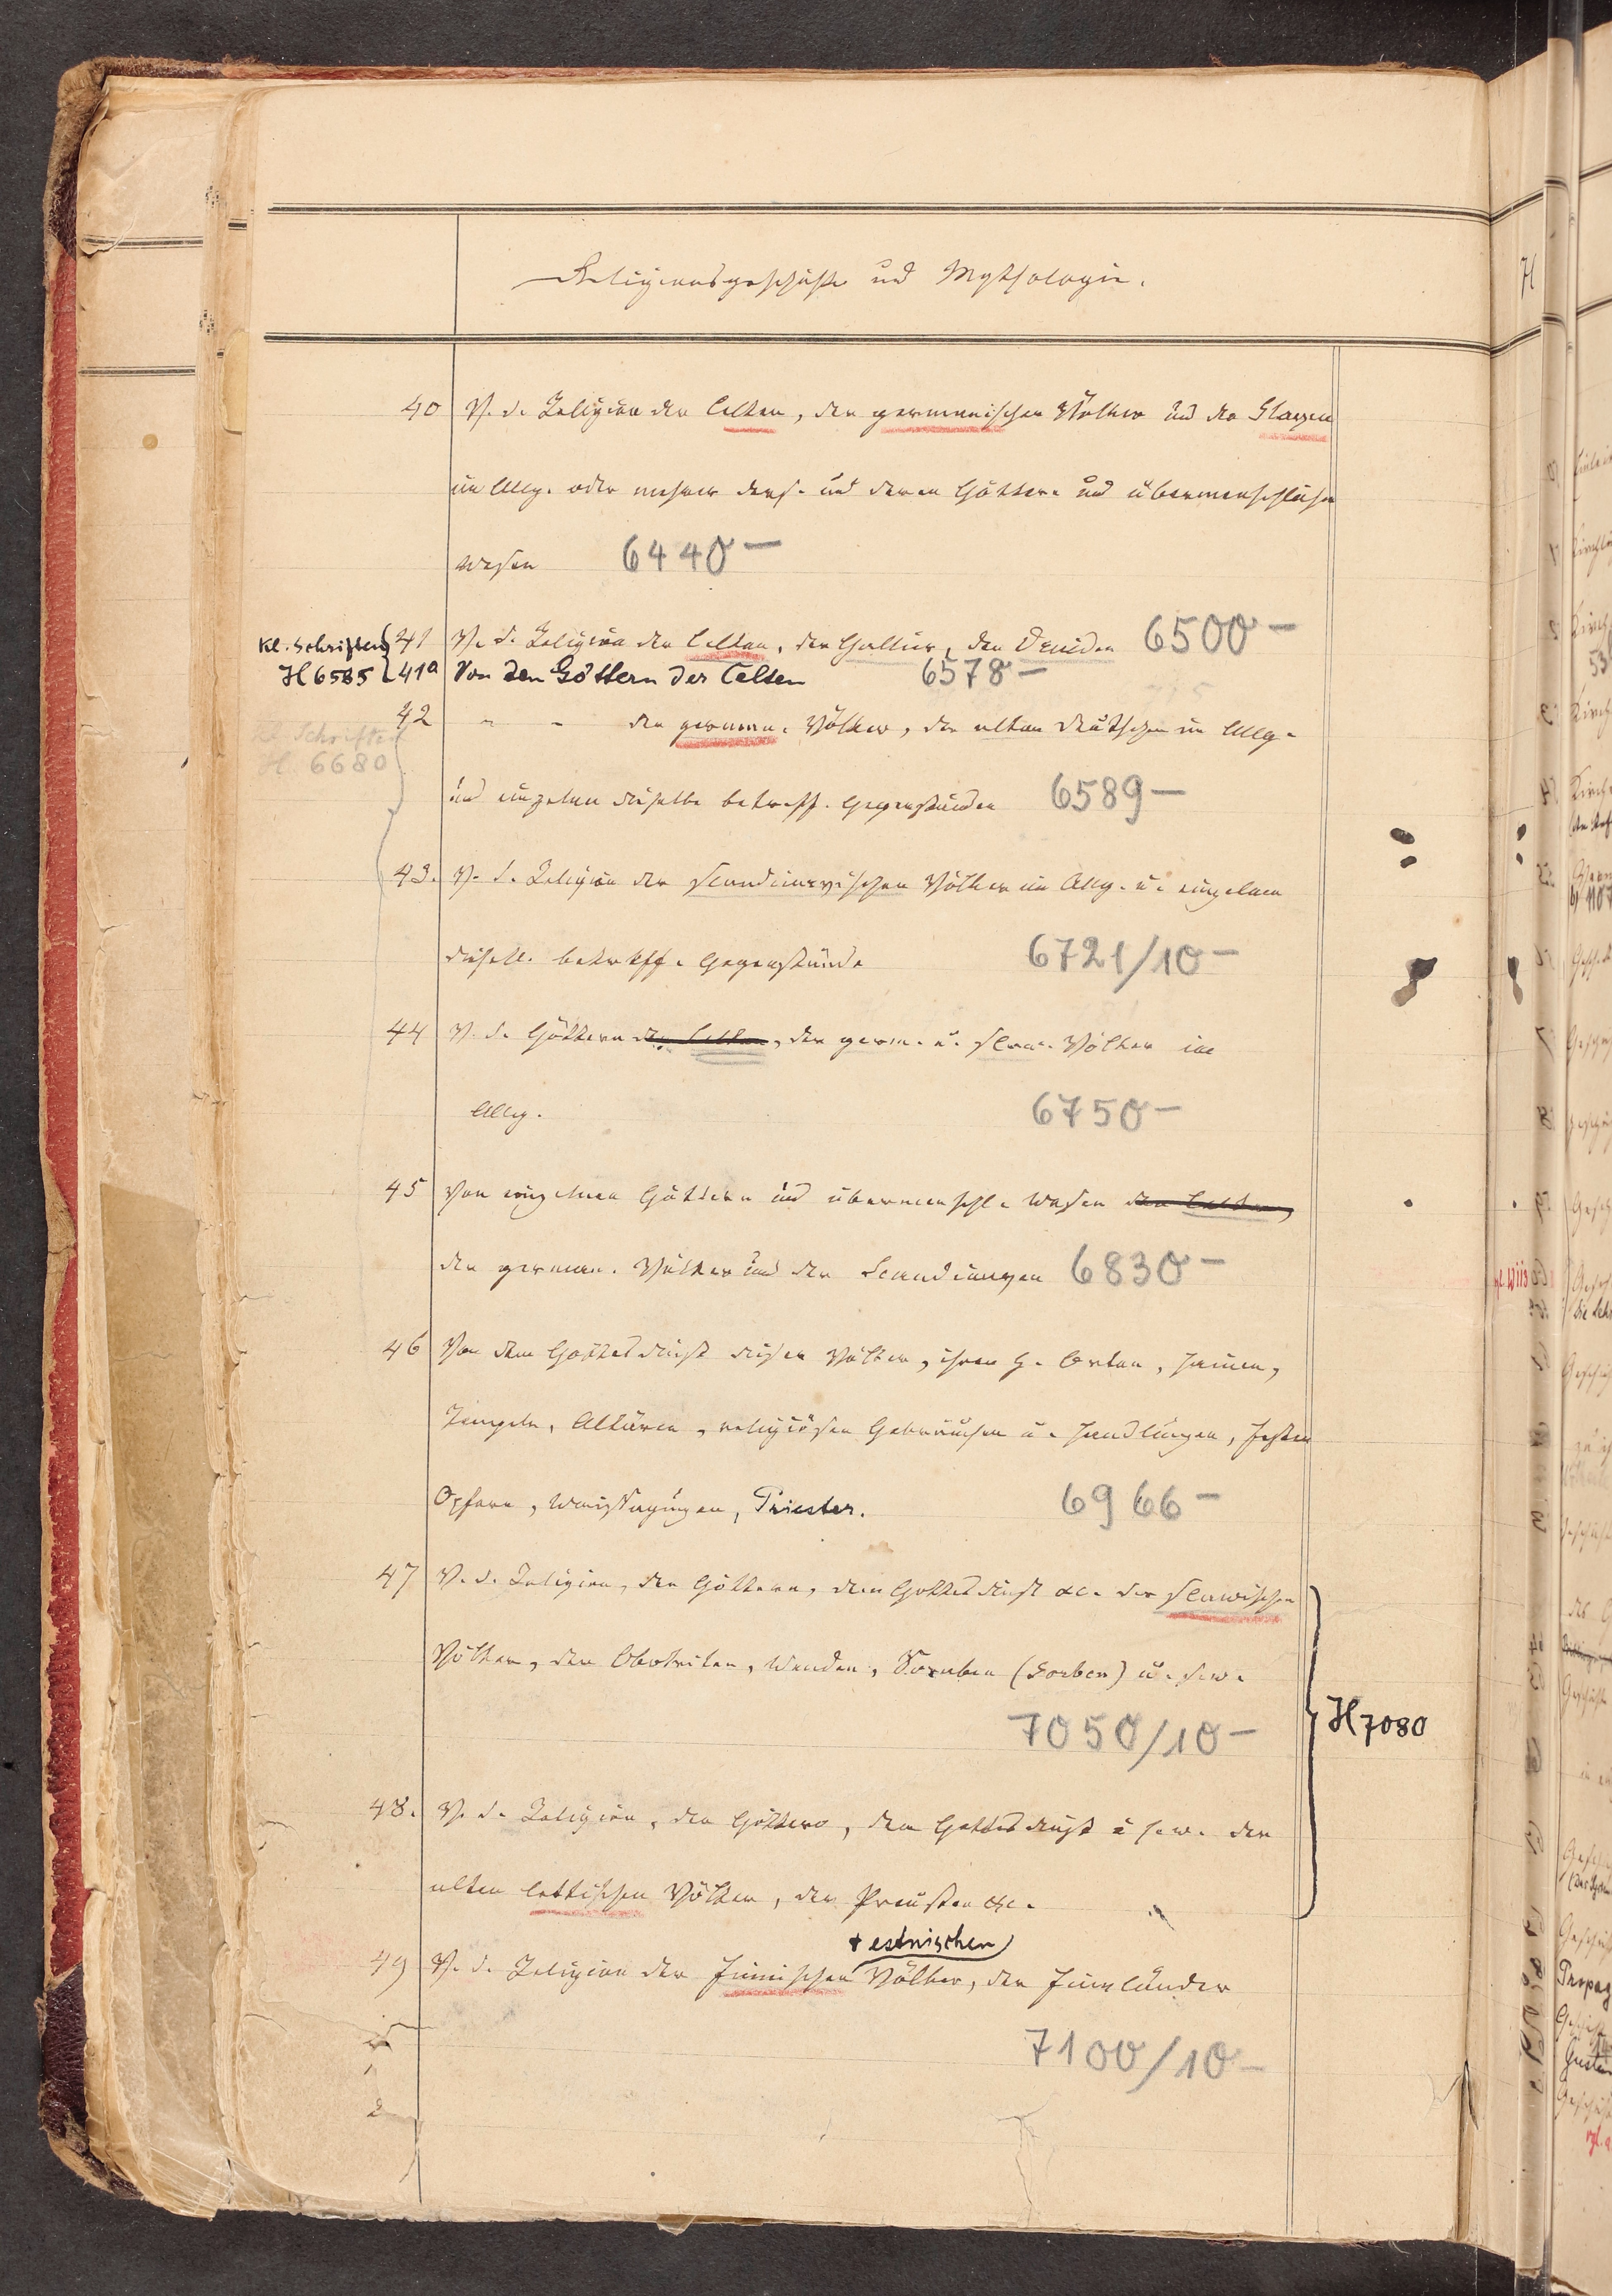 Religionsgeschichte und Mythologie.
40 V. d. Religion der Celten, der germanischen Völker und der Slaven
im Allg. oder mehrer ders. und deren Göttern und übermenschlichen
Wesen 6440 —
Kl. Schriften 41 V. d. Religion der Celten, der Gallier, der Druiden 6500 —
H 6585 41a Von den Göttern der Celten 6578 —
42 " " der german. Völker, der alten Deutschen im Allg.
Kl. Schriften
H 6680
und einzelnen dieselbe betreff. Gegenständen 6589 —
43. V. d. Religion der scandinavischen Völker im Allg. u. einzelnen
dieselb. betreff. Gegenstände 6721/10 —
44 V. d. Göttern der Celten, der germ. u. slav. Völker im
Allg. 6750 —
45 Von einzelnen Göttern und übermenschl. Wesen der Celten,
der german. Völker und der Scandinaven 6830 —
46 Von dem Gottesdienst dieser Völker, ihren h. Orten, Hainen,
Tempeln, Altären, religiösen Gebräuchen u. Handlungen, Festen
Opfern, Weissagungen, Priester. 6966 —
47 V. d. Religion, den Göttern, dem Gottesdienst &c. der slawischen
Völker, der Obotriten, Wenden, Soraben (Sorben) u. s. w.
7050/10 —
H 7080
48. V. d. Religion, den Göttern, dem Gottesdienst u. s. w. der
alten lettischen Völker, der Preußen &c.
+ estnischen
49 V. d. Religion der finnischen Völker, der Finnländer
7100/10 —